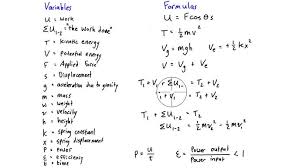 Variables
U = Work
ΣU₁₋₂ = "the work done"
T = Kinetic energy
V = Potential energy
F = Applied Force
s = Displacement
g = acceleration due to gravity
m = mass
w = weight
v = velocity
h = height
k = spring constant
x = spring displacement
P = power
ε = efficiency
t = time
Formulas
U = F cos θ s
T = ½ m v²
Vg = mgh Ve = ± ½ k x²
V = Vg + Ve
T₁ + V₁ + ΣU₁₋₂ = T₂ + V₂
T₁ + V₁ = T₂ + V₂
T₁ + ΣU₁₋₂ = T₂
ΣU₁₋₂ = ½ m v₂² − ½ m v₁²
P = U/t ε = Power output / Power input < 1